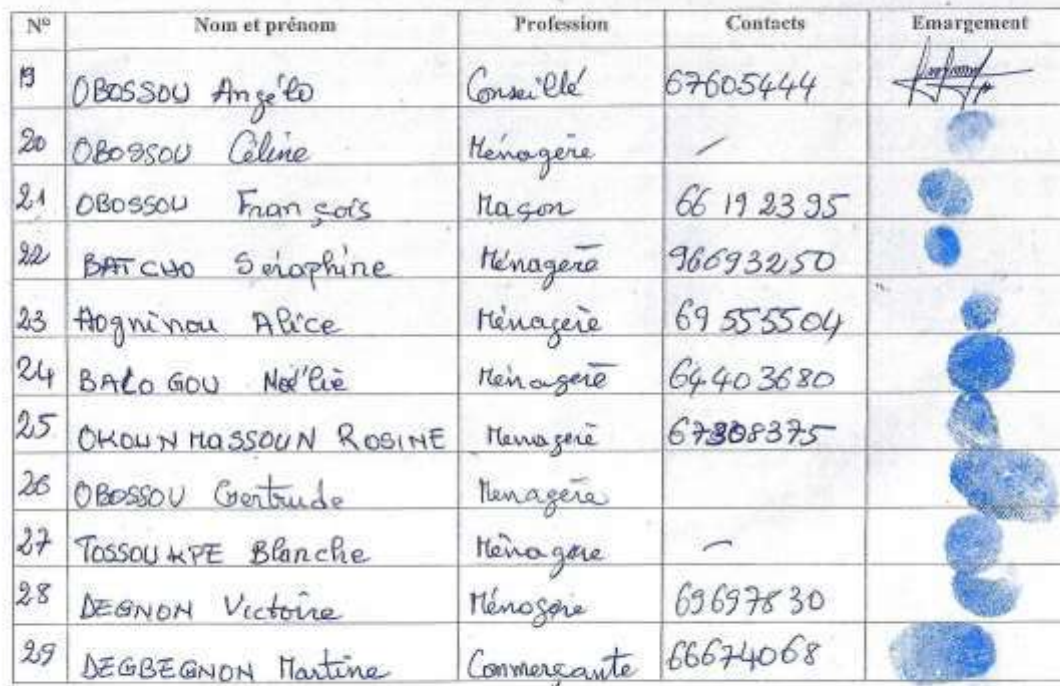 N° Nom et prénom Profession Contacts Emargement
19 OBOSSOU Angélo Conseillé 67605444
20 OBOSSOU Céline Ménagère -
21 OBOSSOU François Maçon 66 19 23 95
22 BATCHO Séraphine Ménagère 96693250
23 Hogninou Alice Ménagère 69 555504
24 BALOGOU Noélie Ménagère 64403680
25 OKOUNMASSOUN ROSINE Menagère 67308375
26 OBOSSOU Gertrude Menagère
27 TOSSOUKPE Blanche Ménagère -
28 DEGNON Victoire Ménagère 69697830
29 DEGBEGNON Martine Commerçante 66674068